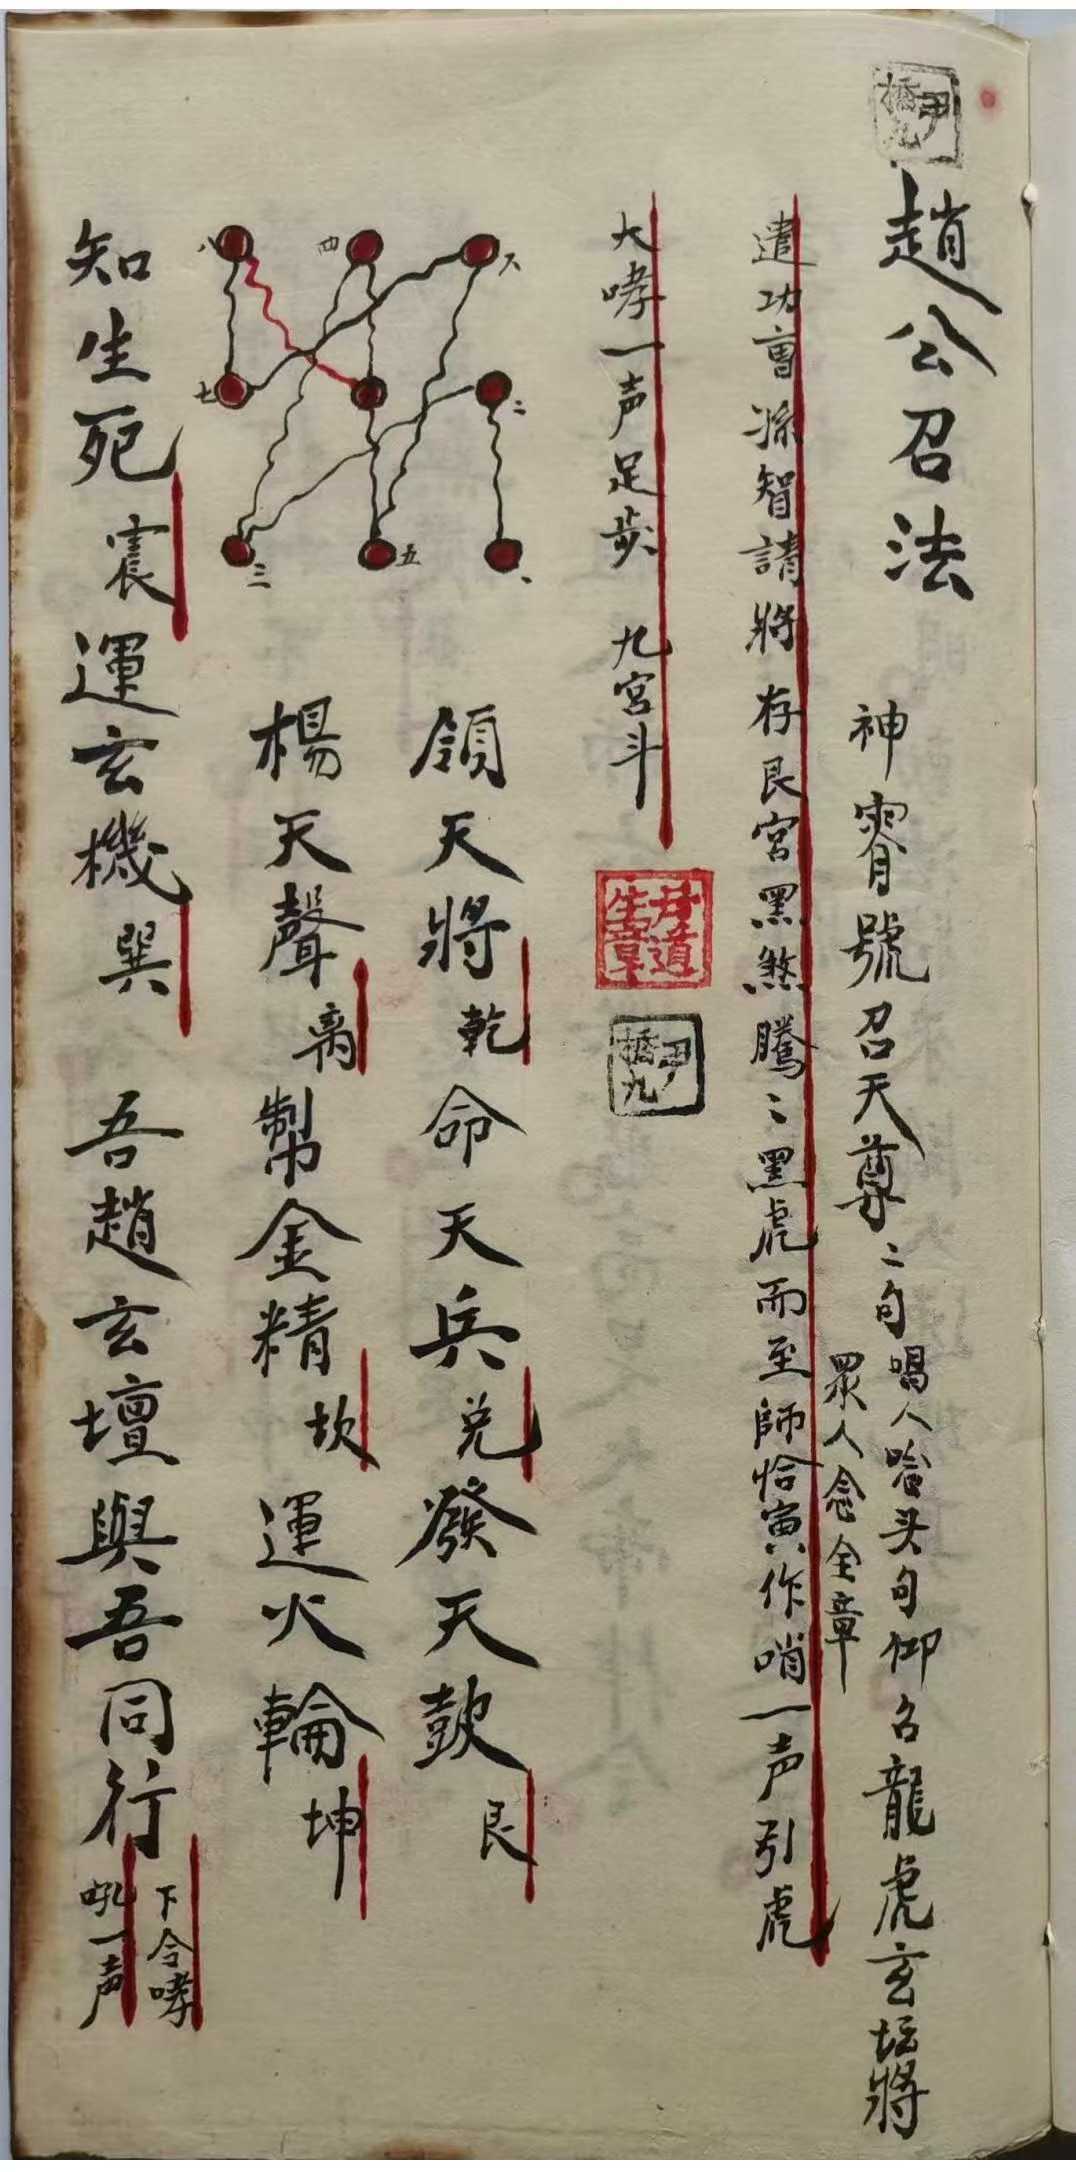 尹橋九
趙公召法
神霄號召天尊二句唱人唸头句仰召龍虎玄坛將
眾人念全章
遣功曹 智請將 存艮宮黑煞騰〻黑虎而至師恰寅作哨一声引虎
大哮一声足步 九宮斗
丹道生章
尹橋九
八 四 六
七 二
三 五 、
領天將乾命天兵兑發天鼓艮
楊天聲离幫金精坎運火輪坤
知生死震運玄機巽 吾趙玄壇與吾同行
下令哮
吼一声